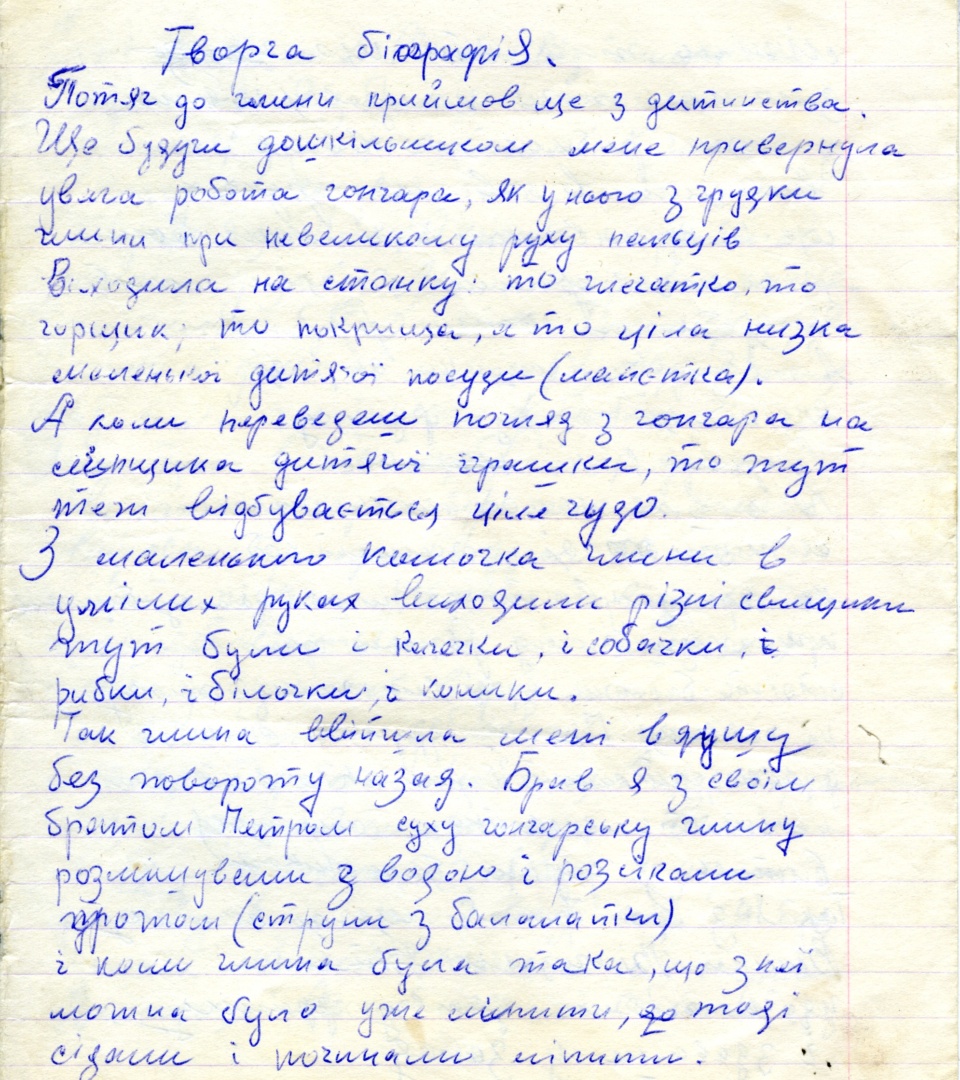 Творча біографія.
Потяг до глини прийшов ще з дитинства.
Ще будучи дошкільником мене привернула
увага робота гончара, як у нього з грудки
глини при невеликому руху пальців
виходила на станку: то глечатко, то
горщик, то покришка, а то ціла низка
маленької дитячої посуди (манєтка).
А коли переведеш погляд з гончара на
ліпщика дитячої іграшки, то тут
теж відбувається ціле чудо.
З маленького комочка глини в
умілих руках виходили різні свищики
тут були і качечки, і собачки, і
рибки, і білочки, і коники.
Так глина ввійшла мені в душу
без повороту назад. Брав я з своїм
братом Петром суху гончарську глину
розмішували з водою і розрізали
дротом (струни з балалайки)
і коли глина була така, що з неї
можна було уже ліпити, то тоді
сідали і починали ліпити.